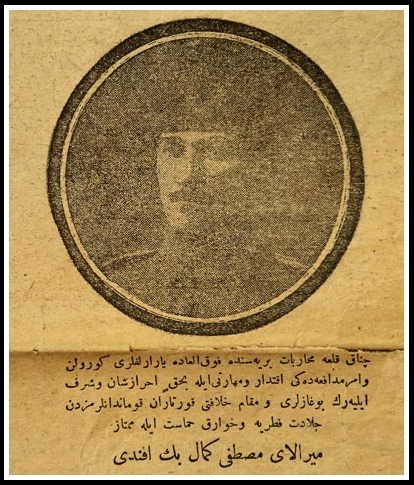 چناق قلعه محاربات بریه‌سنده فوق‌العاده یارارلقلری کورولن
وامرمدافعه‌ده‌کی اقتدار ومهارتی‌ایله بحق احرازشان وشرف
ایلیه‌رك بوغازلری و مقام خلافتی قورتاران قوماندانلرمزدن
جلادت فطریه وخوارق حماست ایله ممتاز
میرالای مصطفی کمال بك افندی